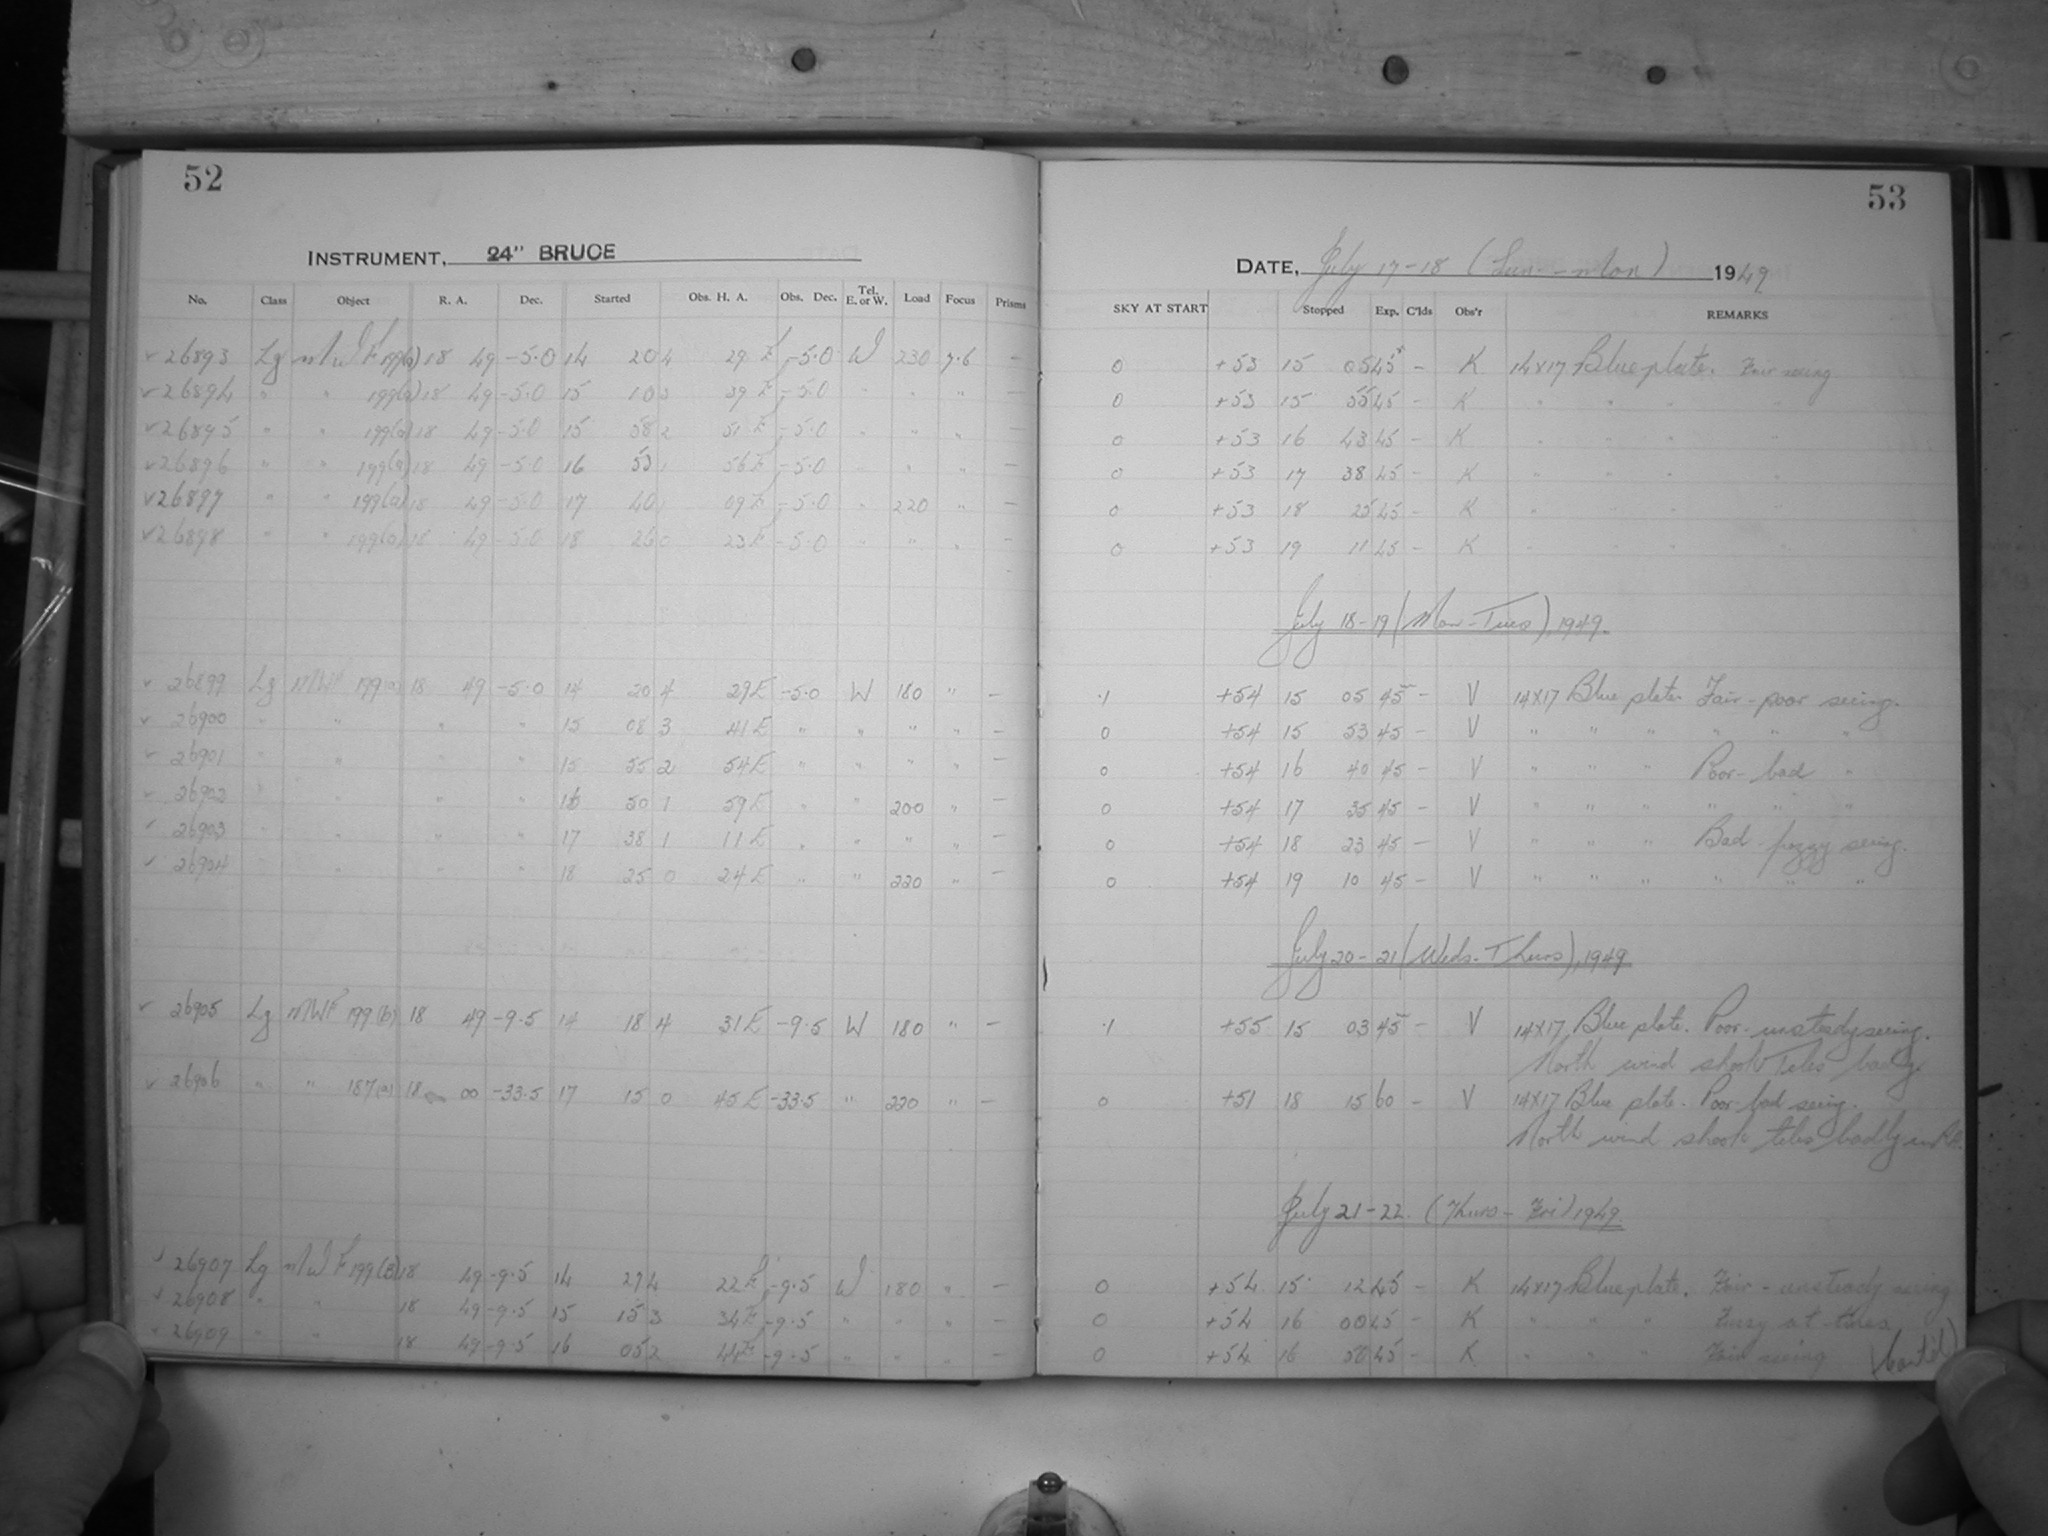 52
INSTRUMENT, 24" BRUCE
No. Class Object R. A. Dec. Started Obs. H. A. Obs. Dec. Tel. E. or W. Load Focus Prisms
✓ 26893 Lg MWF 199(a) 18 49 -5.0 14 20 4 29 E -5.0 W 230 7.6 —
✓ 26894 " " 199(a) 18 49 -5.0 15 10 3 39 E -5.0 " " " —
✓ 26895 " " 199(a) 18 49 -5.0 15 58 2 51 E -5.0 " " " —
✓ 26896 " " 199(a) 18 49 -5.0 16 53 1 56 E -5.0 " " " —
✓ 26897 " " 199(a) 18 49 -5.0 17 40 1 09 E -5.0 " 220 " —
✓ 26898 " " 199(a) 18 49 -5.0 18 26 0 23 E -5.0 " " " —
✓ 26899 Lg MWF 199(a) 18 49 -5.0 14 20 4 29 E -5.0 W 180 " —
✓ 26900 " " " " 15 08 3 41 E " " " " —
✓ 26901 " " " " 15 55 2 54 E " " " " —
✓ 26902 " " " " 16 50 1 59 E " " 200 " —
✓ 26903 " " " " 17 38 1 11 E " " " " —
✓ 26904 " " " " 18 25 0 24 E " " 220 " —
✓ 26905 Lg MWF 199(b) 18 49 -9.5 14 18 4 31 E -9.5 W 180 " —
✓ 26906 " " 187(a) 18 00 -33.5 17 15 0 45 E -33.5 " 220 " —
✓ 26907 Lg MWF 199(B) 18 49 -9.5 14 27 4 22 E -9.5 W 180 " —
✓ 26908 " " 18 49 -9.5 15 15 3 34 E -9.5 " " " —
✓ 26909 " " 18 49 -9.5 16 05 2 44 E -9.5 " " " —
53
DATE, July 17-18 (Sun - Mon) 1949
SKY AT START Stopped Exp. C'lds Obs'r REMARKS
0 +53 15 05 45 — K 14x17 Blue plate. Fair seeing
0 +53 15 55 45 — K " " " "
0 +53 16 43 45 — K " " " "
0 +53 17 38 45 — K " " " "
0 +53 18 25 45 — K " " " "
0 +53 19 11 45 — K " " " "
July 18-19 (Mon-Tues), 1949.
.1 +54 15 05 45 — V 14x17 Blue plate. Fair-poor seeing.
0 +54 15 53 45 — V " " " " " "
0 +54 16 40 45 — V " " " Poor-bad "
0 +54 17 35 45 — V " " " " " "
0 +54 18 23 45 — V " " " Bad fuzzy seeing.
0 +54 19 10 45 — V " " " " " "
July 20-21 (Weds-Thurs), 1949
.1 +55 15 03 45 — V 14x17 Blue plate. Poor-unsteady seeing.
North wind shook Teles badly.
0 +51 18 15 60 — V 14x17 Blue plate. Poor-bad seeing.
North wind shook teles badly in
July 21-22. (Thurs - Fri) 1949.
0 +54 15 12 45 — K 14x17 Blue plate. Fair - unsteady seeing
0 +54 16 00 45 — K " " " Fuzzy at times
0 +54 16 50 45 — K " " " Fair seeing (Cont'd)